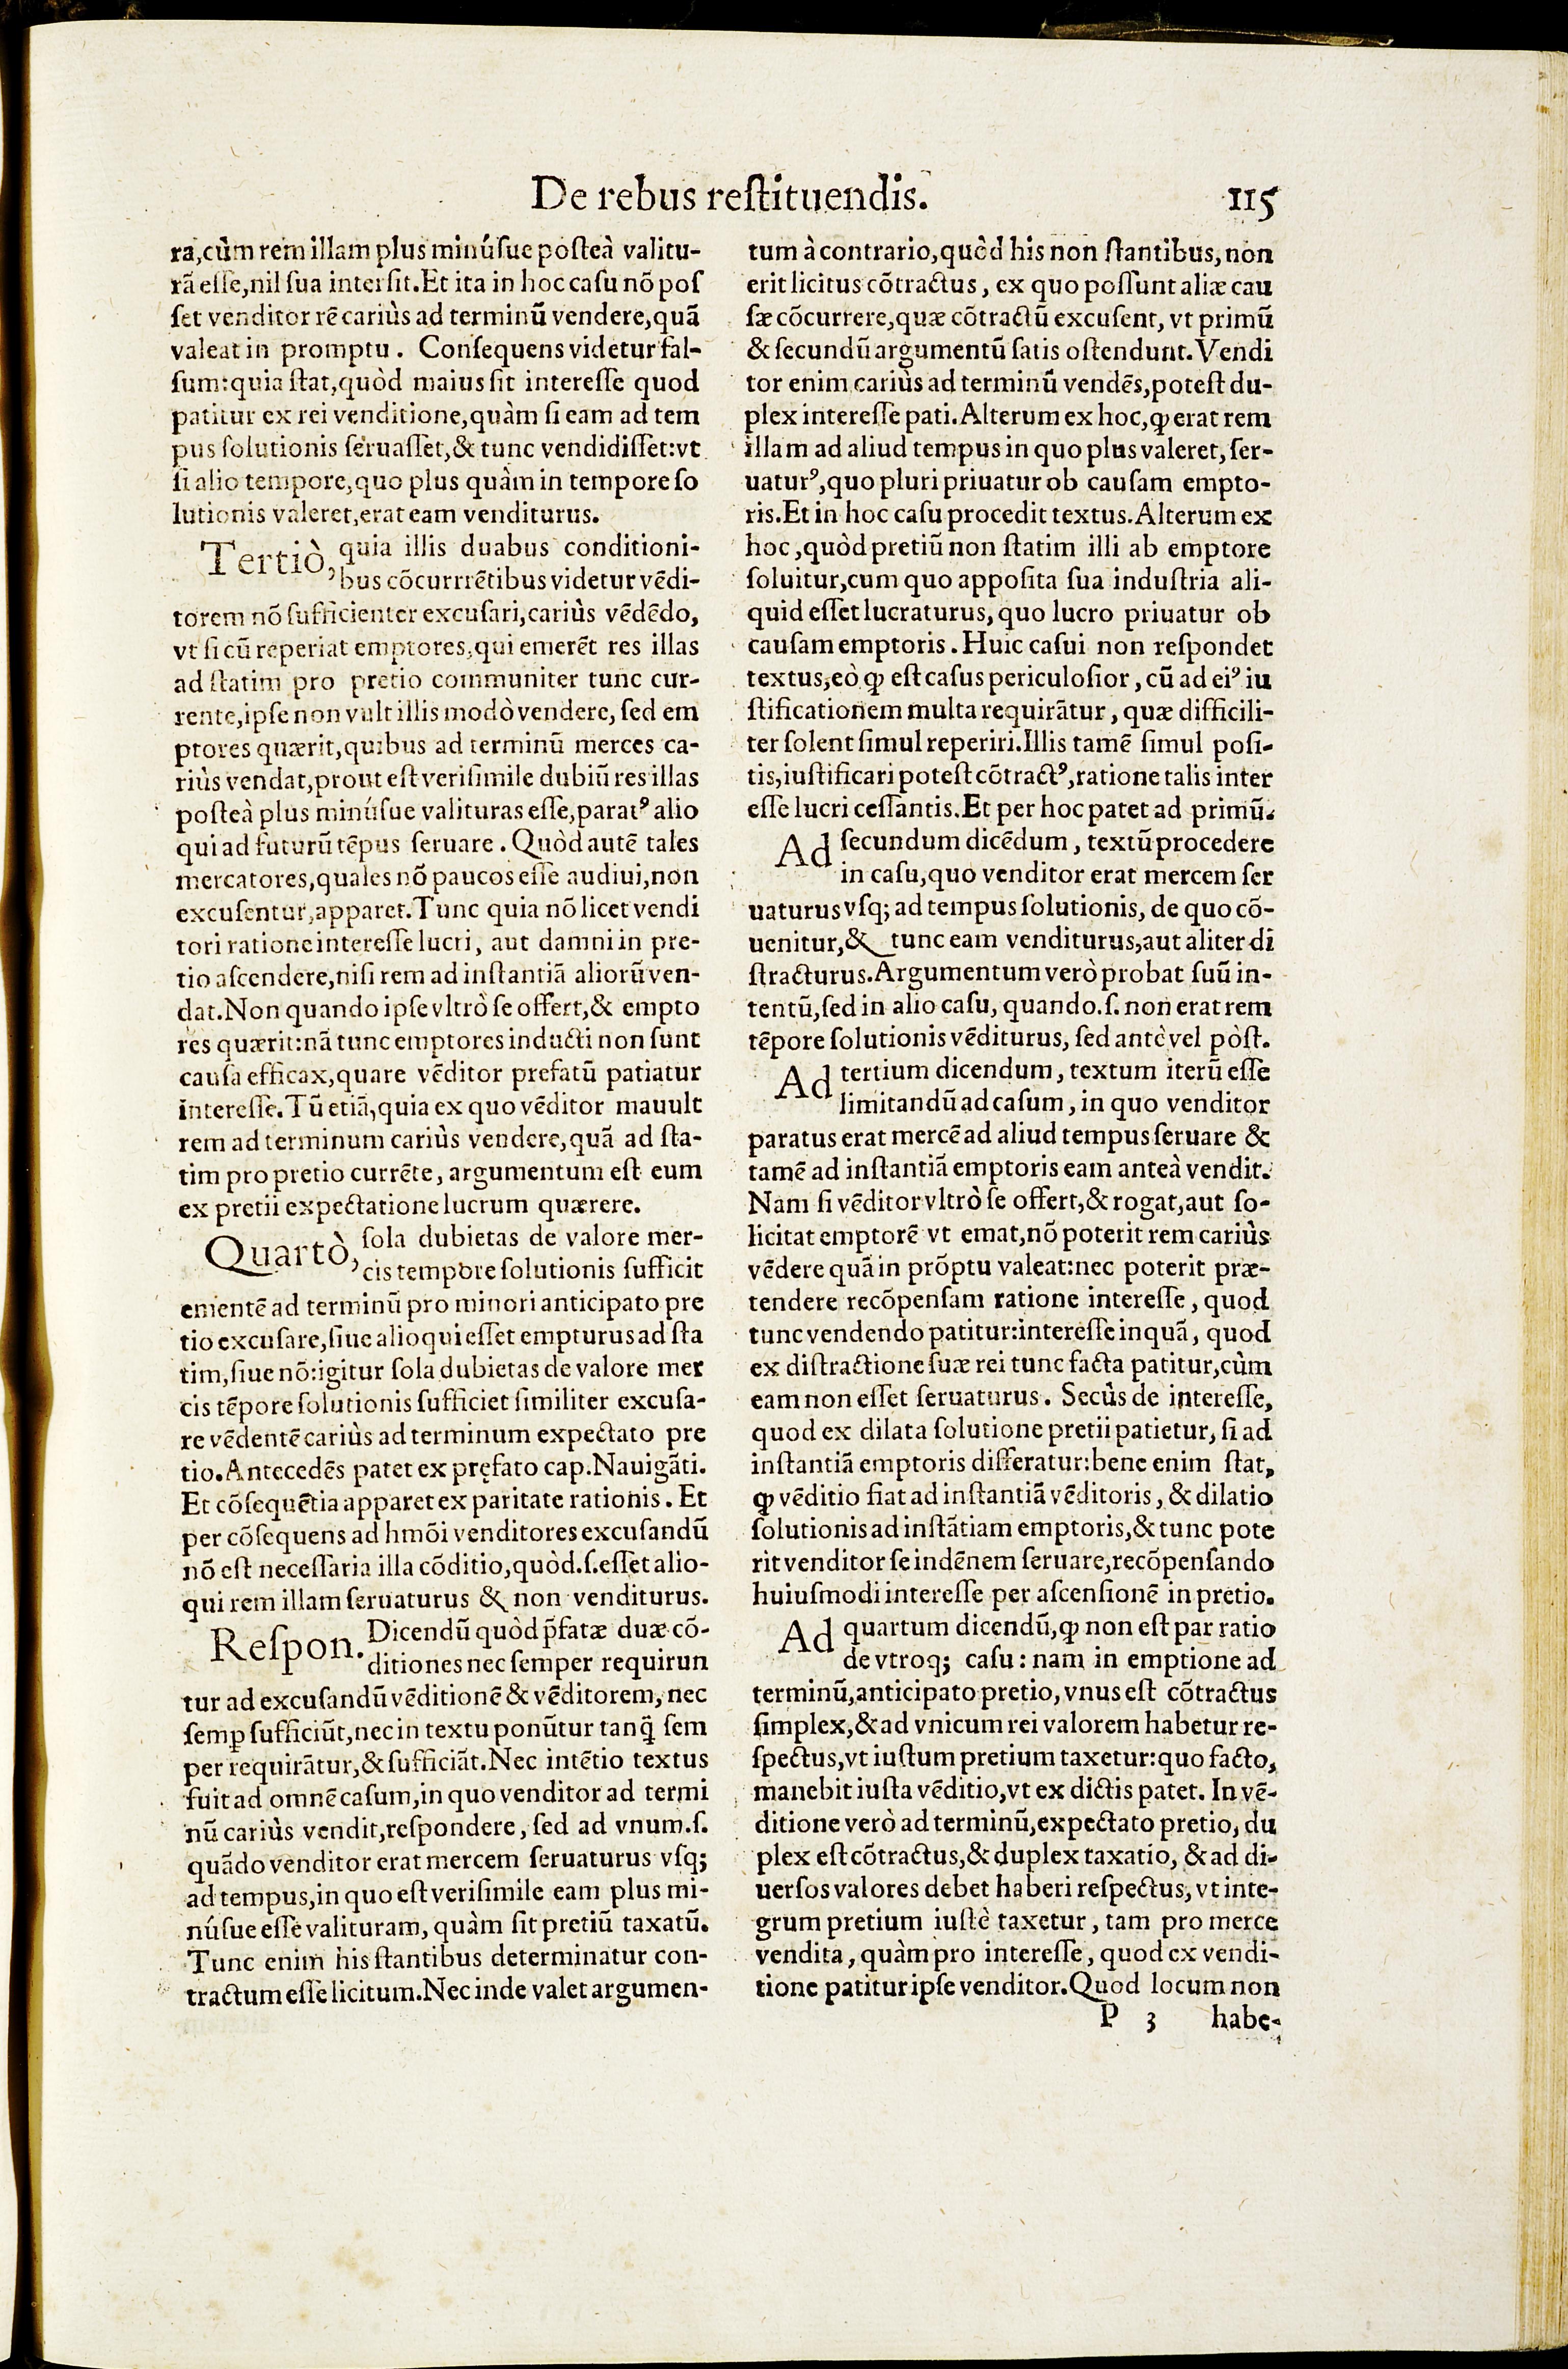 De rebus reſtituendis. 115
ra, cùm rem illam plus minúſue poſteà valitu-
rã eſſe, nil ſua interſit. Et ita in hoc caſu nõ poſ
ſet venditor rẽ cariùs ad terminũ vendere, quã
valeat in promptu. Conſequens videtur fal-
ſum: quia ſtat, quòd maius ſit intereſſe quod
patitur ex rei venditione, quàm ſi eam ad tem
pus ſolutionis ſeruaſſet, & tunc vendidiſſet: vt
ſi alio tempore, quo plus quàm in tempore ſo
lutionis valeret, erat eam venditurus.
Tertiò, quia illis duabus conditioni-
bus cõcurrrẽtibus videtur vẽdi-
torem nõ ſufficienter excuſari, cariùs vẽdẽdo,
vt ſi cũ reperiat emptores, qui emerẽt res illas
ad ſtatim pro pretio communiter tunc cur-
rente, ipſe non vult illis modò vendere, ſed em
ptores quærit, quibus ad terminũ merces ca-
riùs vendat, prout eſt veriſimile dubiũ res illas
poſteà plus minúſue valituras eſſe, paratꝰ alio
qui ad futurũ tẽpus ſeruare. Quòd autẽ tales
mercatores, quales nõ paucos eſſe audiui, non
excuſentur, apparet. Tunc quia nõ licet vendi
tori ratione intereſſe lucri, aut damni in pre-
tio aſcendere, niſi rem ad inſtantiã aliorũ ven-
dat. Non quando ipſe vltrò ſe offert, & empto
res quærit: nã tunc emptores inducti non ſunt
cauſa efficax, quare vẽditor prefatũ patiatur
intereſſe. Tũ etiã, quia ex quo vẽditor mauult
rem ad terminum cariùs vendere, quã ad ſta-
tim pro pretio currẽte, argumentum eſt eum
ex pretii expectatione lucrum quærere.
Quartò, ſola dubietas de valore mer-
cis tempore ſolutionis ſufficit
ementẽ ad terminũ pro minori anticipato pre
tio excuſare, ſiue alioqui eſſet empturus ad ſta
tim, ſiue nõ: igitur ſola dubietas de valore mer
cis tẽpore ſolutionis ſufficiet ſimiliter excuſa-
re vẽdentẽ cariùs ad terminum expectato pre
tio. Antecedẽs patet ex pręfato cap. Nauigãti.
Et cõſequẽtia apparet ex paritate rationis. Et
per cõſequens ad hmõi venditores excuſandũ
nõ eſt neceſſaria illa cõditio, quòd.ſ. eſſet alio-
qui rem illam ſeruaturus & non venditurus.
Reſpon. Dicendũ quòd p̃fatæ duæ cõ-
ditiones nec ſemper requirun
tur ad excuſandũ vẽditionẽ & vẽditorem, nec
ſemꝑ ſufficiũt, nec in textu ponũtur tanq̃ ſem
per requirãtur, & ſufficiãt. Nec intẽtio textus
fuit ad omnẽ caſum, in quo venditor ad termi
nũ cariùs vendit, reſpondere, ſed ad vnum.ſ.
quãdo venditor erat mercem ſeruaturus vſq;
ad tempus, in quo eſt veriſimile eam plus mi-
núſue eſſe valituram, quàm ſit pretiũ taxatũ.
Tunc enim his ſtantibus determinatur con-
tractum eſſe licitum. Nec inde valet argumen-
tum à contrario, quòd his non ſtantibus, non
erit licitus cõtractus, ex quo poſſunt aliæ cau
ſæ cõcurrere, quæ cõtractũ excuſent, vt primũ
& ſecundũ argumentũ ſatis oſtendunt. Vendi
tor enim cariùs ad terminũ vendẽs, poteſt du-
plex intereſſe pati. Alterum ex hoc, ꝙ erat rem
illam ad aliud tempus in quo plus valeret, ſer-
uaturꝰ, quo pluri priuatur ob cauſam empto-
ris. Et in hoc caſu procedit textus. Alterum ex
hoc, quòd pretiũ non ſtatim illi ab emptore
ſoluitur, cum quo appoſita ſua induſtria ali-
quid eſſet lucraturus, quo lucro priuatur ob
cauſam emptoris. Huic caſui non reſpondet
textus, eò ꝙ eſt caſus periculoſior, cũ ad eiꝰ iu
ſtificationem multa requirãtur, quæ difficili-
ter ſolent ſimul reperiri. Illis tamẽ ſimul poſi-
tis, iuſtificari poteſt cõtractꝰ, ratione talis inter
eſſe lucri ceſſantis. Et per hoc patet ad primũ.
Ad ſecundum dicẽdum, textũ procedere
in caſu, quo venditor erat mercem ſer
uaturus vſq; ad tempus ſolutionis, de quo cõ-
uenitur, & tunc eam venditurus, aut aliter di
ſtracturus. Argumentum verò probat ſuũ in-
tentũ, ſed in alio caſu, quando.ſ. non erat rem
tẽpore ſolutionis vẽditurus, ſed antè vel pòſt.
Ad tertium dicendum, textum iterũ eſſe
limitandũ ad caſum, in quo venditor
paratus erat mercẽ ad aliud tempus ſeruare &
tamẽ ad inſtantiã emptoris eam anteà vendit.
Nam ſi vẽditor vltrò ſe offert, & rogat, aut ſo-
licitat emptorẽ vt emat, nõ poterit rem cariùs
vẽdere quã in prõptu valeat: nec poterit præ-
tendere recõpenſam ratione intereſſe, quod
tunc vendendo patitur: intereſſe inquã, quod
ex diſtractione ſuæ rei tunc facta patitur, cùm
eam non eſſet ſeruaturus. Secùs de intereſſe,
quod ex dilata ſolutione pretii patietur, ſi ad
inſtantiã emptoris differatur: bene enim ſtat,
ꝙ vẽditio fiat ad inſtantiã vẽditoris, & dilatio
ſolutionis ad inſtãtiam emptoris, & tunc pote
rit venditor ſe indẽnem ſeruare, recõpenſando
huiuſmodi intereſſe per aſcenſionẽ in pretio.
Ad quartum dicendũ, ꝙ non eſt par ratio
de vtroq; caſu: nam in emptione ad
terminũ, anticipato pretio, vnus eſt cõtractus
ſimplex, & ad vnicum rei valorem habetur re-
ſpectus, vt iuſtum pretium taxetur: quo facto,
manebit iuſta vẽditio, vt ex dictis patet. In vẽ-
ditione verò ad terminũ, expectato pretio, du
plex eſt cõtractus, & duplex taxatio, & ad di-
uerſos valores debet haberi reſpectus, vt inte-
grum pretium iuſtè taxetur, tam pro merce
vendita, quàm pro intereſſe, quod ex vendi-
tione patitur ipſe venditor. Quod locum non
P 3 habe-